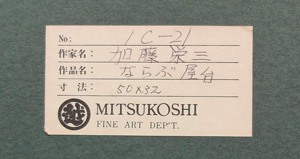 No: 1C-21
作家名: 加藤栄三
作品名: ならぶ屋台
寸法: 50×32
越 MITSUKOSHI
FINE ART DEP'T.